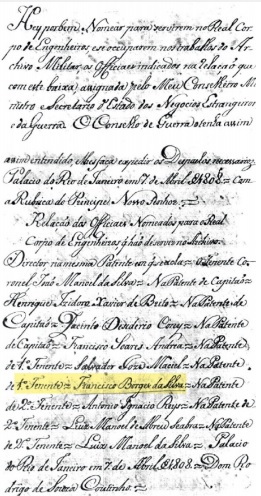 Hey por bem Nomear para servirem no Real Cor=
po de Engenheiros, e se occuparem nos trabalhos do Ar=
chivo Militar, os Officiaes indicados na relação q̃ ue
com este baixa, assignada pelo Meu Conselheiro Mi
nistro, e Secretario d'Estado dos Negocios Estrangeiros
e da Guerra. O Conselho de Guerra o tenha assim
assim entendido, e lhes faça expedir os Despachos necessarios.
Palacio do Rio de Janeiro em 7 de Abril de 1808 = Com
a Rubrica do Principe Nosso Senhor =
Relação dos Officiaes Nomeados para o Real
Corpo de Engenheiros q̃ hão de servir no Archivo.
Director na mesma Patente em q̃ se acha = o Tenente Co=
ronel João Manoel da Silva = Na Patente de Capitão =
Henrique Izidoro Xavier de Brito = Na Patente de
Capitão = Jacinto Desiderio Cony = Na Patente
de Capitão = Francisco Soares Andrea = Na Patente
de 1º Tenente = Salvador Jozé Maciel = Na Patente
de 1º Tenente = Francisco Borges da Silva = Na Patente
de 2º Tenente = Antonio Ignacio Reys = Na Patente
de 2º Tenente = Luiz Manoel de Abreu Seabra = Na Patente
de 2º Tenente = Luiz Manoel da Silva = Palacio
do Rio de Janeiro em 7 de Abril de 1808 = Dom Ro
drigo de Souza Coutinho =